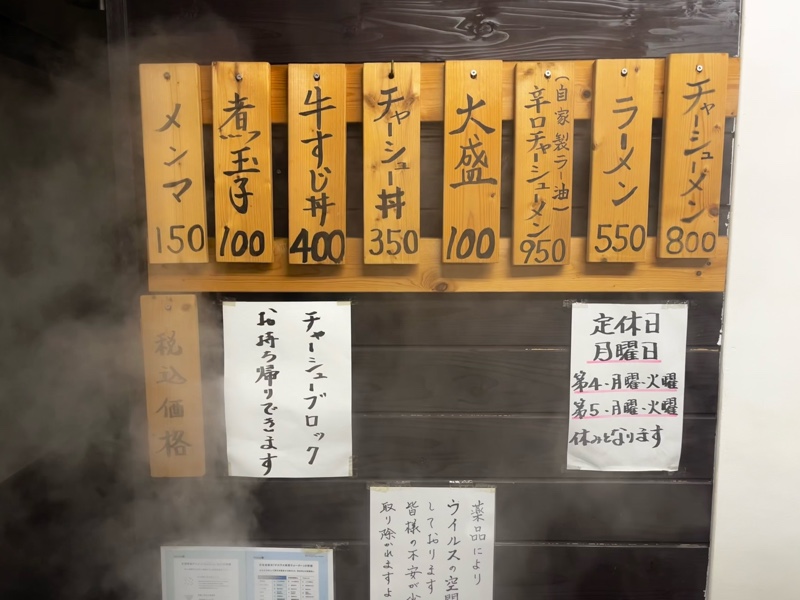 チャーシューメン
800
ラーメン
550
(自家製ラー油)
辛口チャーシューメン
950
大盛
100
チャーシュー丼
350
牛すじ丼
400
煮玉子
100
メンマ
150
税込価格
チャーシューブロック
お持ち帰りできます
定休日
月曜日
第4・月曜・火曜
第5・月曜・火曜
休みとなります
薬品により
ウイルスの空間
しております
皆様の不安が
取り除かれますよ